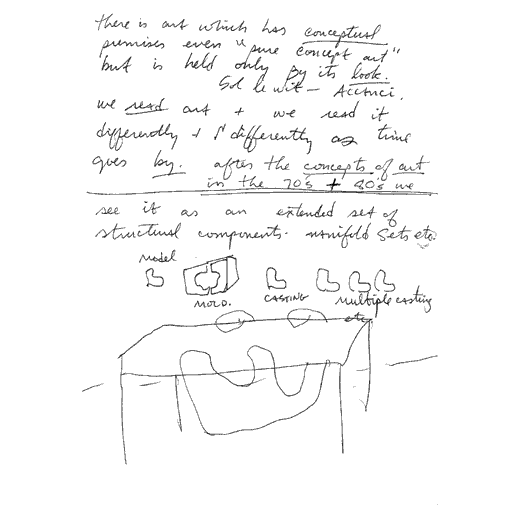 there is art which has conceptual
premises even "pure concept art"
but is held only by its look.
Sol le wit – Acconci.
we read art + we read it
differently + differently as time
goes by. after the concepts of art
in the 70's + 80's we
see it as an extended set of
structural components. manifold sets etc.
model
MOLD.
CASTING
multiple casting
etc.